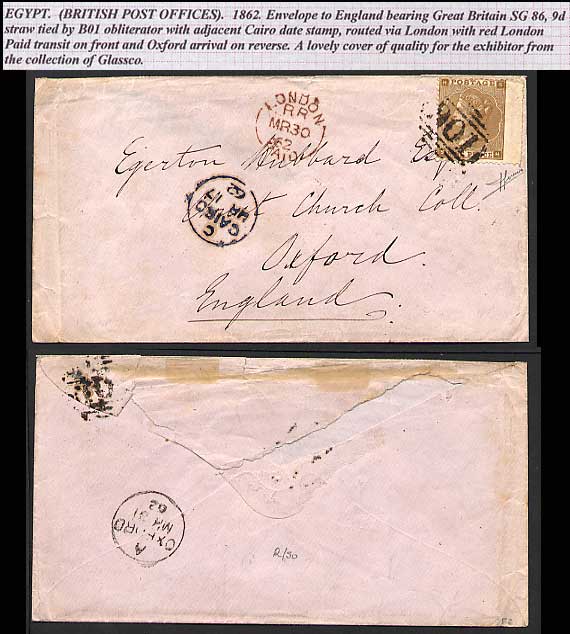 EGYPT. (BRITISH POST OFFICES). 1862. Envelope to England bearing Great Britain SG 86, 9d
straw tied by B01 obliterator with adjacent Cairo date stamp, routed via London with red London
Paid transit on front and Oxford arrival on reverse. A lovely cover of quality for the exhibitor from
the collection of Glassco.
LONDON
RR
MR30
62
POSTAGE
B01
Egerton Hubbard Esq
CAIRO
C
Church Coll.
Oxford.
England.
OXFORD
A
MR 31
62
R/50